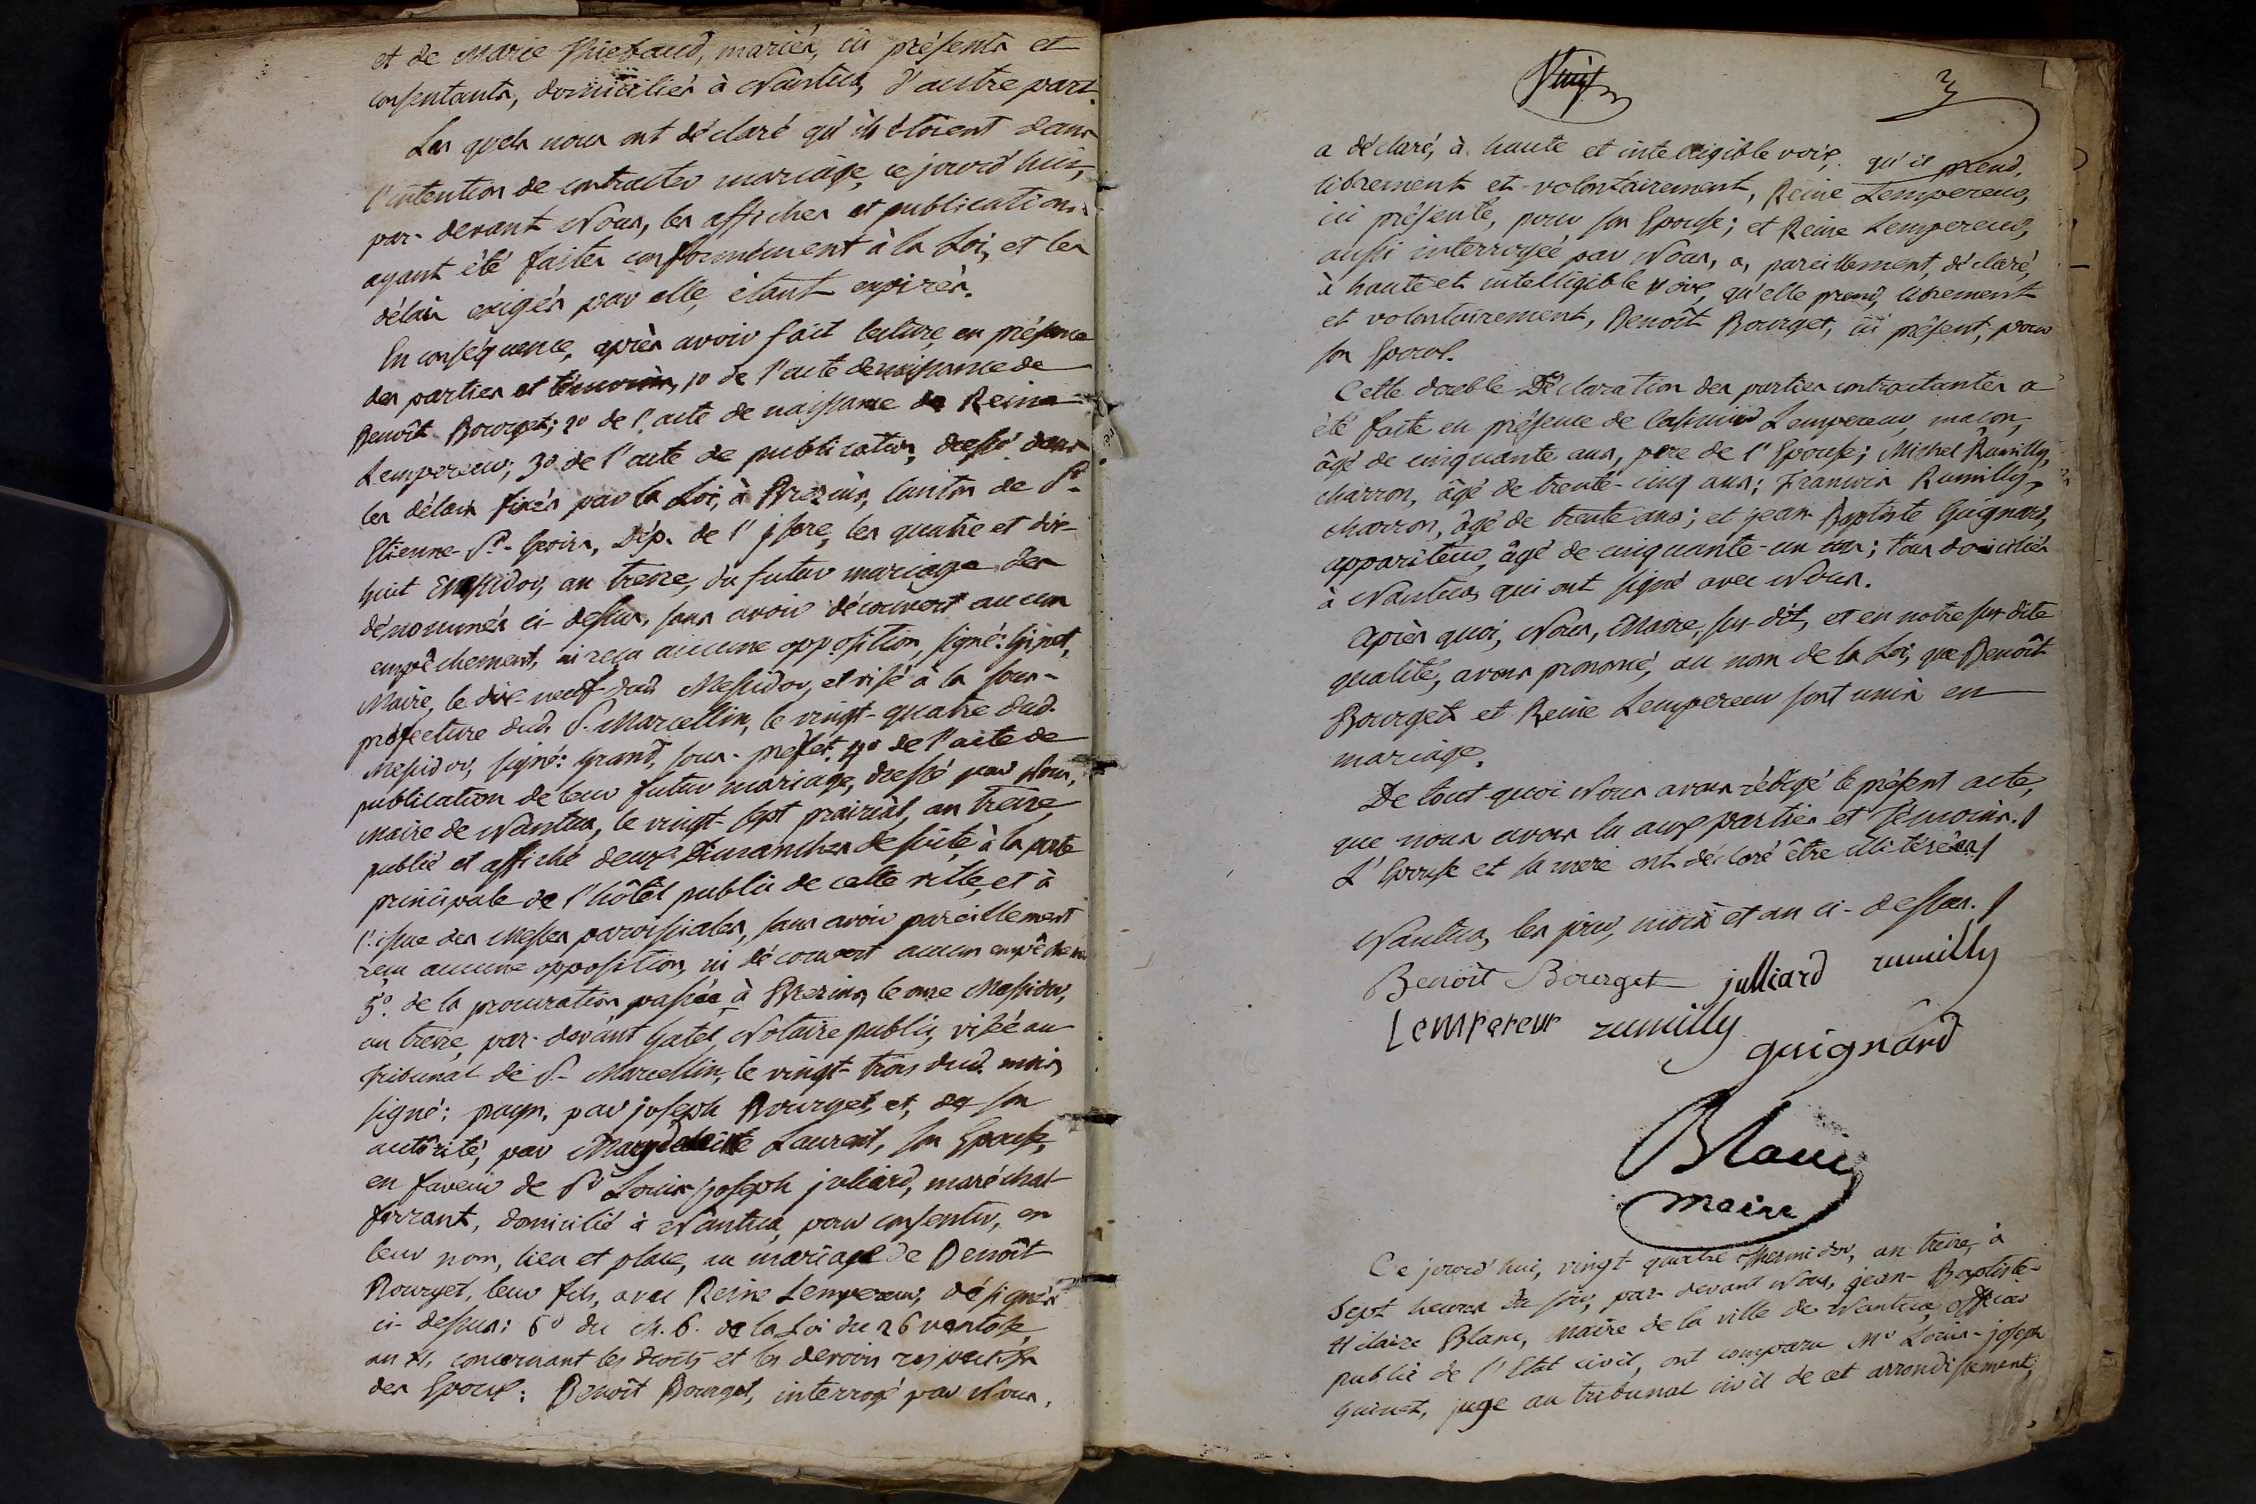 et de Marie Thiebaud, mariés, ici présents et
consentants, domiciliés à Nantua, d'autre part.
Les quels nous ont déclaré qu'ils étoient dans
l'intention de contracter mariage, ce jourd'hui,
par-devant Nous, les affiches et publications
ayant été faites conformément à la Loi, et les
délais exigés par elle, étant expirés.
En conséquence, après avoir fait lecture, en présence
des parties et témoins, 1º de l'acte de naissance de
Benoît Bourget; 2º de l'acte de naissance de Reine
Lempereur; 3º de l'acte de publication, dressé dans
les délais fixés par la Loi, à Brezins, Canton de St
Etienne-St-Geoirs, Dép. de l'Isère, les quatre et dix-
huit Messidor, an treize, du futur mariage des
dénommés ci-dessus, sans avoir découvert aucun
empêchement, ni reçu aucune opposition, signé: Ginet,
Maire, le dix-neuf dud. Messidor, et visé à la sous-
préfecture dud. St. Marcellin, le vingt-quatre dud.
Messidor, signé: Grand, sous-préfet. 4º de l'acte de
publication de leur futur mariage, dressé par Nous,
Maire de Nantua, le vingt-sept prairial, an treize,
publié et affiché deux Dimanches de suite, à la porte
principale de l'hôtel public de cette ville, et à
l'issue des Messes paroissiales, sans avoir pareillement
reçu aucune opposition, ni découvert aucun empêchem
5º. de la procuration passée à Brezins, le onze Messidor,
an treize, par-devant Gatel, Notaire public, visée au
Tribunal de St-Marcellin, le vingt-trois dud. mois,
signé: payn, par joseph Bourget, et, de son
autorité, par Magdeleine Laurent, son Epouse,
en faveur de Sr Louis-joseph julliard, maréchal
ferrant, domicilié à Nantua, pour consentir, en
leur nom, lieu et place, au mariage de Benoît
Bourget, leur fils, avec Reine Lempereur, désignés
ci-dessus: 6º du ch. 6. de la Loi du 26 ventose,
an XI, concernant les droits et les devoirs respectifs
des Epoux: Benoît Bourget, interrogé par Nous,
3
a déclaré, à haute et intelligible voix, qu'il prend,
librement et volontairement, Reine Lempereur,
ici présente, pour son Epouse; et Reine Lempereur,
aussi interrogée par Nous, a, pareillement, déclaré,
à haute et intelligible voix, qu'elle prend, librement
et volontairement, Benoît Bourget, ici présent, pour
son Epoux.
Cette double Déclaration des parties contractantes a
été faite en présence de Casimir Lempereur, maçon,
âgé de cinquante ans, père de l'Epouse; Michel Rumilly,
charron, âgé de trente-cinq ans; François Rumilly,
charron, âgé de trente ans; et jean-Baptiste Guignard,
appariteur, âgé de cinquante-un ans; tous domiciliés
à Nantua, qui ont signé avec Nous.
Après quoi, Nous, Maire, sus-dit, et en notre sus-dite
qualité, avons prononcé, au nom de la Loi, que Benoît
Bourget et Reine Lempereur sont unis en
mariage.
De tout quoi Nous avons rédigé le présent acte,
que nous avons lu aux parties et Témoins.
L'Epouse et sa mère ont déclaré être illitérées.
Nantua, les jour, mois et an ci-dessus.
Benoit Bourget julliard rumilly
Lempereur rumilly
guignard
Blanc
maire
Ce jourd'hui, vingt-quatre Thermidor, an treize, à
sept heures du soir, par-devant Nous, jean-Baptiste-
Hilaire Blanc, Maire de la ville de Nantua, officier
public de l'Etat civil, ont comparu Mr Louis-joseph
Guinet, juge au tribunal civil de cet arrondissement,